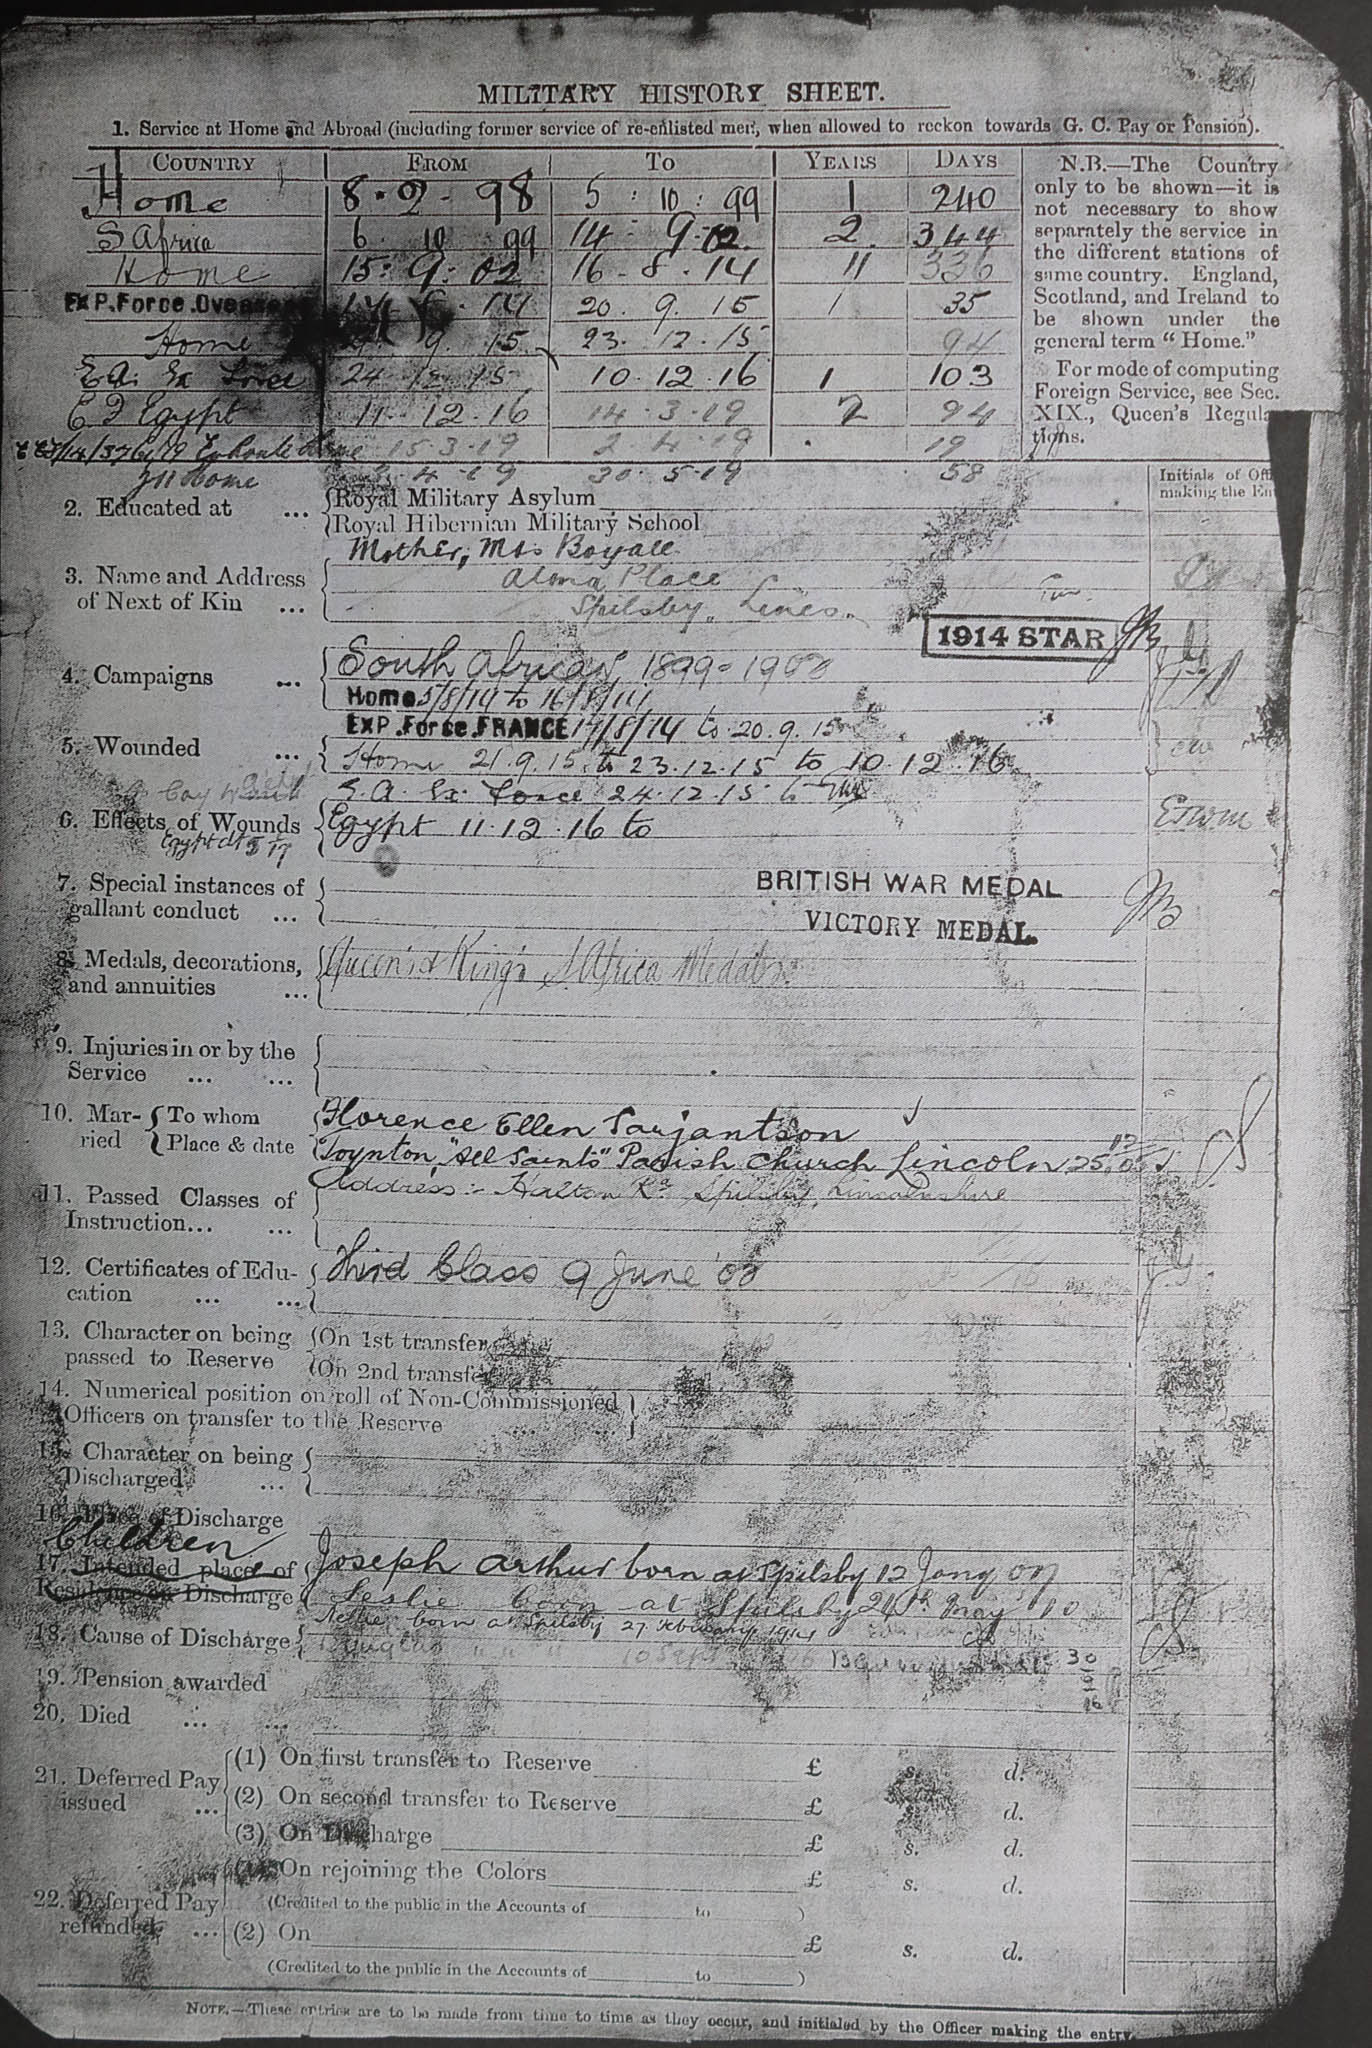 MILITARY HISTORY SHEET.
1. Service at Home and Abroad (including former service of re-enlisted men, when allowed to reckon towards G. C. Pay or Pension).
COUNTRY FROM TO YEARS DAYS
Home 8 . 2 - 98 5 : 10 : 99 1 240
S Africa 6 10 99 14 - 9 - 02. 2. 344
Home 15 : 9 : 02 16 - 8 . 14 11 336
EXP. Force. Overseas 14 20 . 9 . 15 1 35
Home 9 . 15 23 . 12 . 15 94
E A. Ex Force 24 12 15 10 . 12 . 16 1 103
Egypt 11 . 12 . 16 14 . 3 . 19 2 94
15 . 3 . 19 2 . 4 . 19 19
Home 4 . 19 30 . 5 . 19 58
N.B.—The Country
only to be shown—it is
not necessary to show
separately the service in
the different stations of
same country. England,
Scotland, and Ireland to
be shown under the
general term “ Home.”
For mode of computing
Foreign Service, see Sec.
XIX., Queen's Regula-
tions.
Initials of
making the
2. Educated at ... Royal Military Asylum
Royal Hibernian Military School
3. Name and Address
of Next of Kin ...
Mother, Mrs Boyall
Alma Place
Spilsby. Lincs.
1914 STAR
4. Campaigns ... South Africa 1899 -
Home 5/8/14 to 16/8/14
EXP. Force. FRANCE 17/8/14 to 20 . 9 . 15
5. Wounded ... Home 21 . 9 . 15. to 23 . 12 . 15 to 10 . 12 . 16
E. A. Ex. Force 24 . 12 . 15 to
6. Effects of Wounds Egypt 11 . 12 . 16 to
Egypt
7. Special instances of
gallant conduct ...
BRITISH WAR MEDAL
VICTORY MEDAL.
8. Medals, decorations,
and annuities ...
Queen's & King's S. Africa Medals
9. Injuries in or by the
Service ... ...
10. Mar-
ried
To whom Florence Ellen Sarjantson
Place & date Toynton "All Saints" Parish Church Lincoln 25
Address :- Halton Rd Spilsby Lincolnshire
11. Passed Classes of
Instruction... ...
12. Certificates of Edu-
cation ... ...
Third Class 9 June
13. Character on being
passed to Reserve
On 1st transfer
On 2nd transfer
14. Numerical position on roll of Non-Commissioned
Officers on transfer to the Reserve ... ...
15. Character on being
Discharged ...
16. Place of Discharge
Children
17. Intended place of
Residence on Discharge
Joseph Arthur born at Spilsby 12 Jany 07
Leslie born at Spilsby 24th May 10
born at Spilsby 27 February 1914
18. Cause of Discharge
19. Pension awarded
20. Died ... ...
21. Deferred Pay
issued ...
(1) On first transfer to Reserve £ s. d.
(2) On second transfer to Reserve £ s. d.
(3) On Discharge £ s. d.
22. Deferred Pay
refunded, ...
(1) On rejoining the Colors £ s. d.
(Credited to the public in the Accounts of to )
(2) On £ s. d.
(Credited to the public in the Accounts of to )
NOTE.—These entries are to be made from time to time as they occur, and initialed by the Officer making the entry.